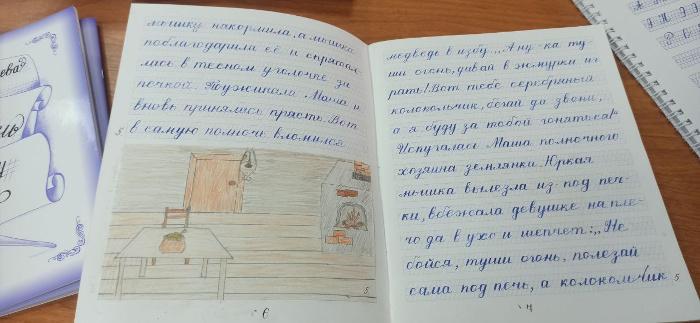 мышку накормила, а мышка
поблагодарила её и спрятал-
лась в тесном уголочке за
печкой. Поужинала Маша и
вновь принялась прясть. Вот
5 в самую полночь вломился
5
6
медведь в избу. „А ну-ка ту-
ши огонь, давай в жмурки иг-
рать! Вот тебе серебряный
колокольчик, бегай да звони,
а я буду за тобой гоняться!"
Испугалась Маша полночного
хозяина землянки. Юркая
мышка вылезла из-под печ-
ки, взбежала девушке на пле-
чо да в ухо и шепчет: „Не
бойся, туши огонь, полезай
сама под печь, а колокольчик 5
ч